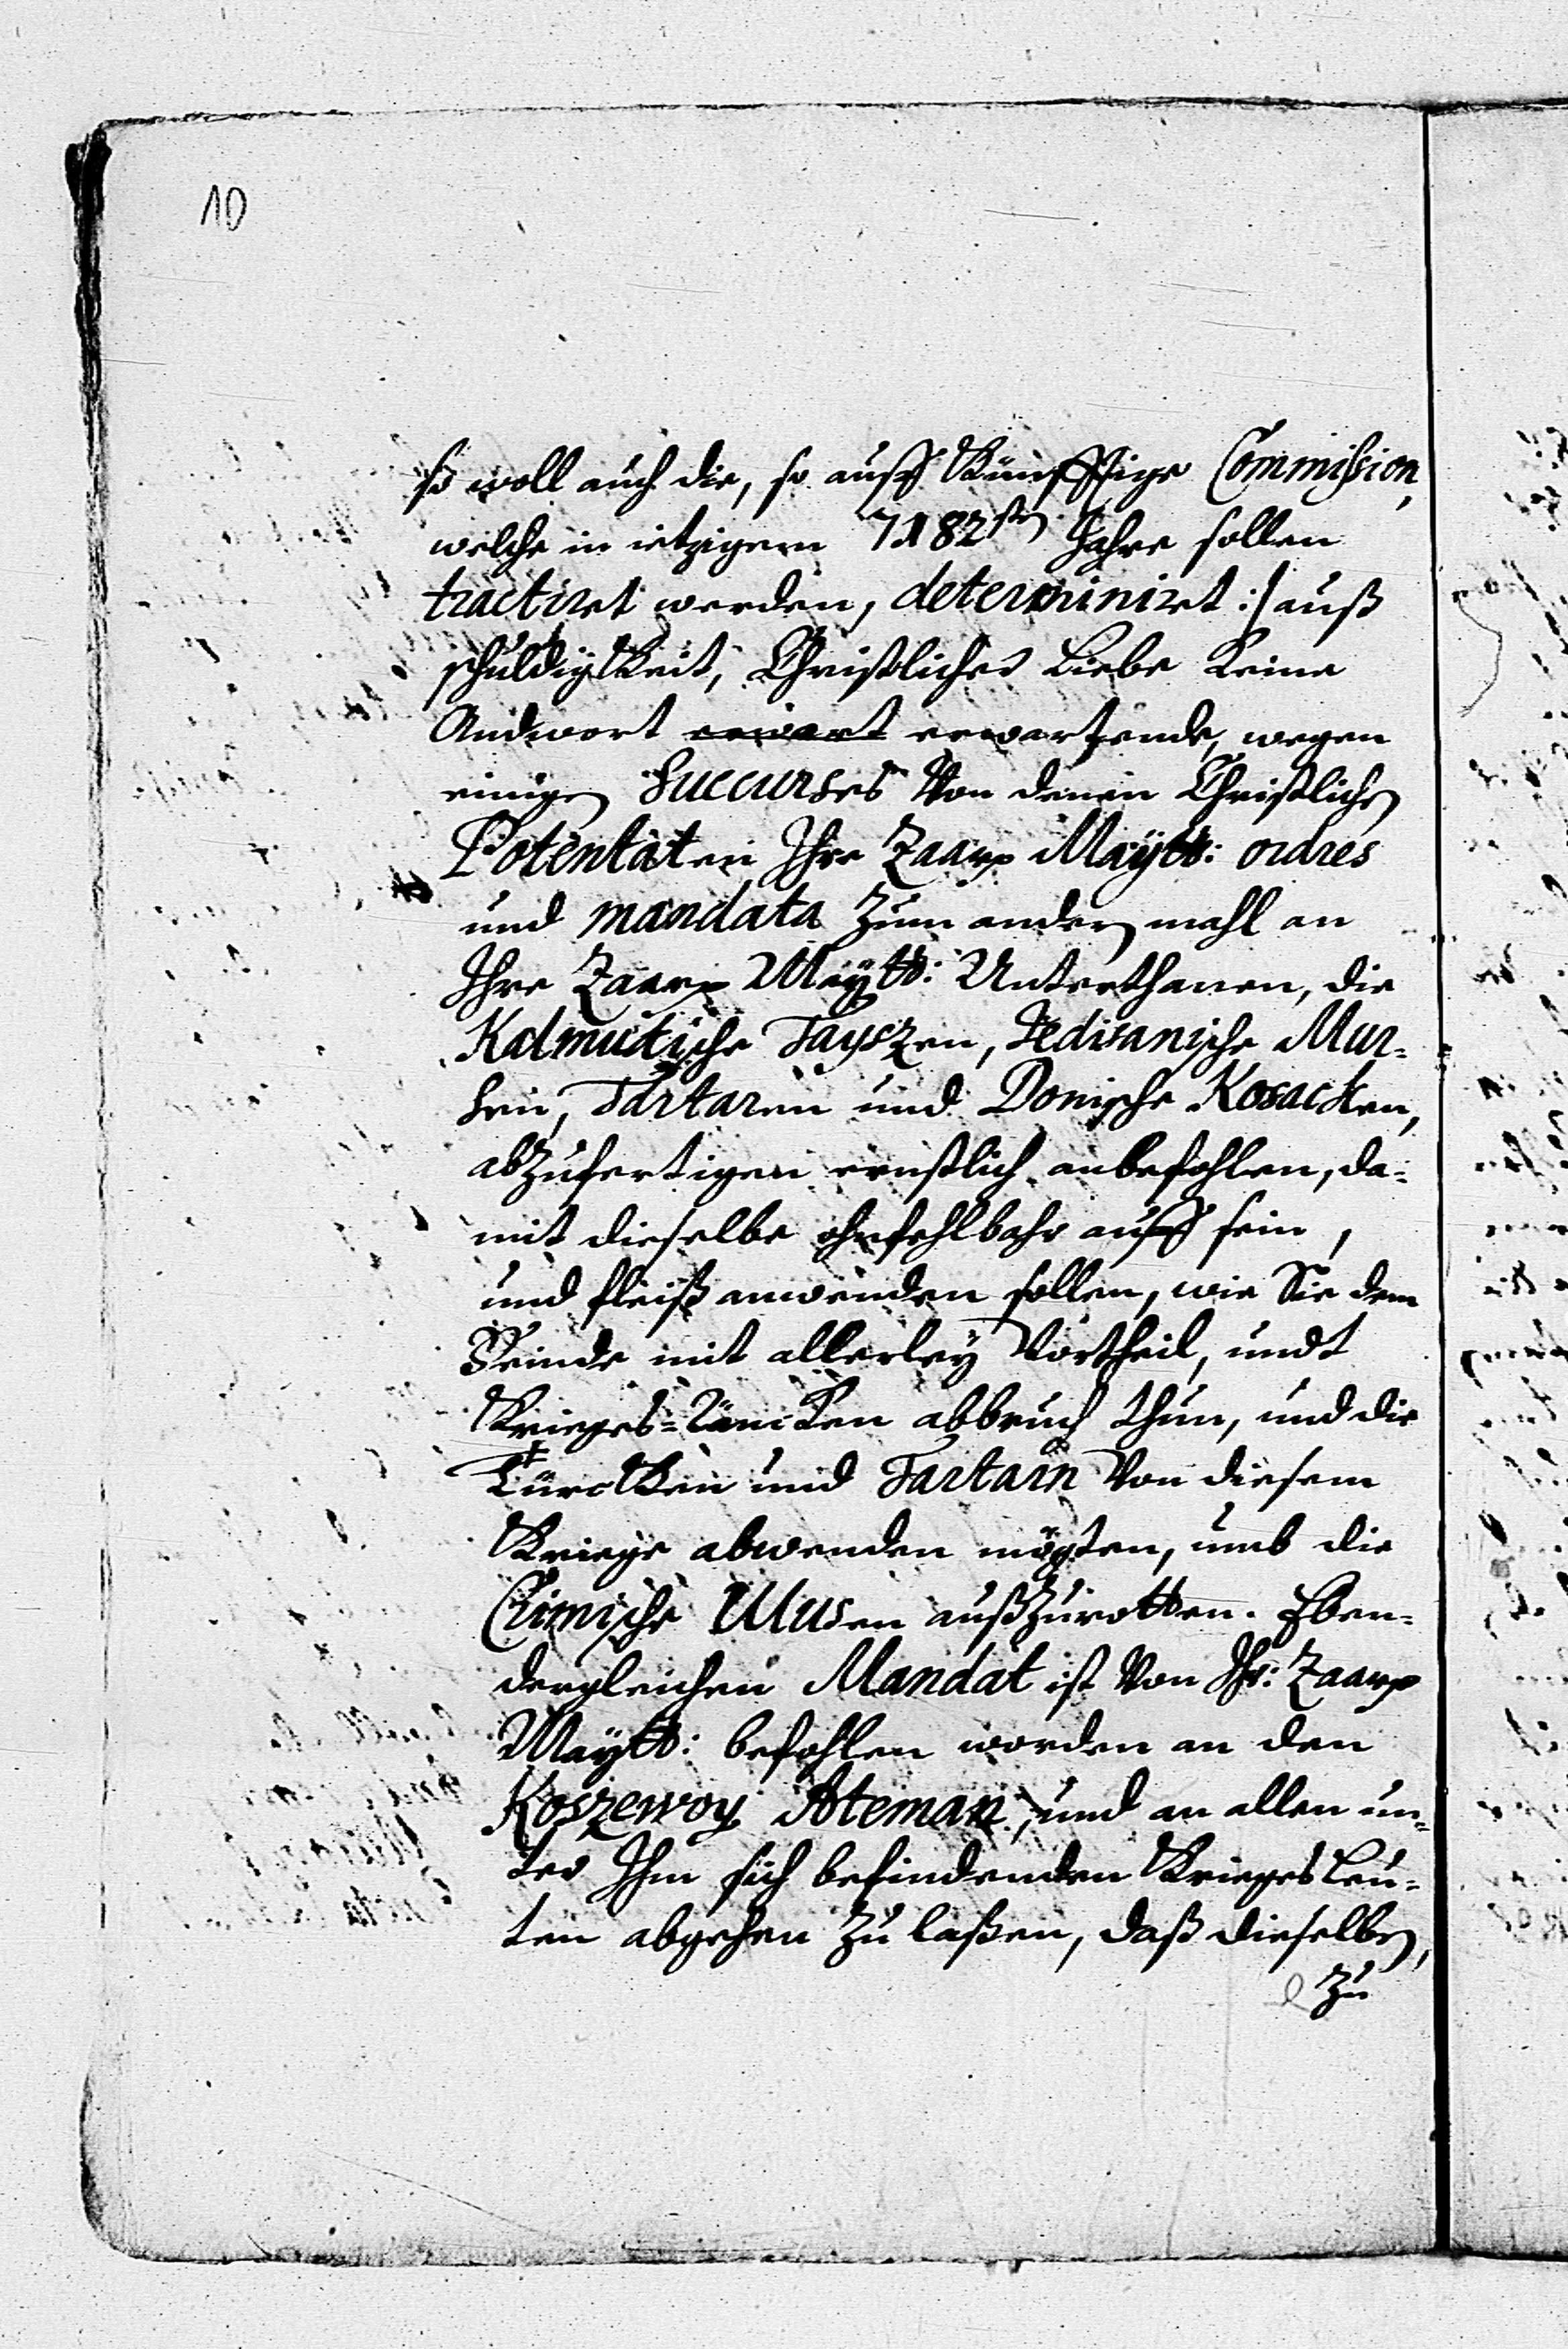 10
so woll auch die, so auff Künfftige Commission,
welche in ietzigem 7182sten Jahre sollen
tractiret werden, determiniret :/ auß
schuldigkeit, Christlicher Liebe keine
Andwort erwart erwartende, wegen
einigen Succurses von denen Christlichen
Potentaten Ihre Zaar. Maytt: ordres
und mandata zum andern mahl an
Ihre Zaar. Maytt: Unterthanen, die
Kalmukische Tayszen, Jedisanische Mur-
sen, Tartaren und Donische Kosacken,
abzufertigen ernstlich anbefohlen, da-
mit dieselbe ohnfehlbahr auff sein,
und fleiß anwenden sollen, wie Sie dem
Feinde mit allerley Vortheil, undt
Krieges-räncken abbruch thun, und die
Türcken und Tartarn von diesem
Kriege abwenden mögten, umb die
Crimische Ulusen außzurotten. Eben-
dergleichen Mandat ist von Ihr: Zaar.
Maytt: befohlen worden an den
Koszewoy Ateman, und an allen un-
ter Ihm sich befindenden Krieges Leu-
ten abgehen zu laßen, daß dieselben,
zu